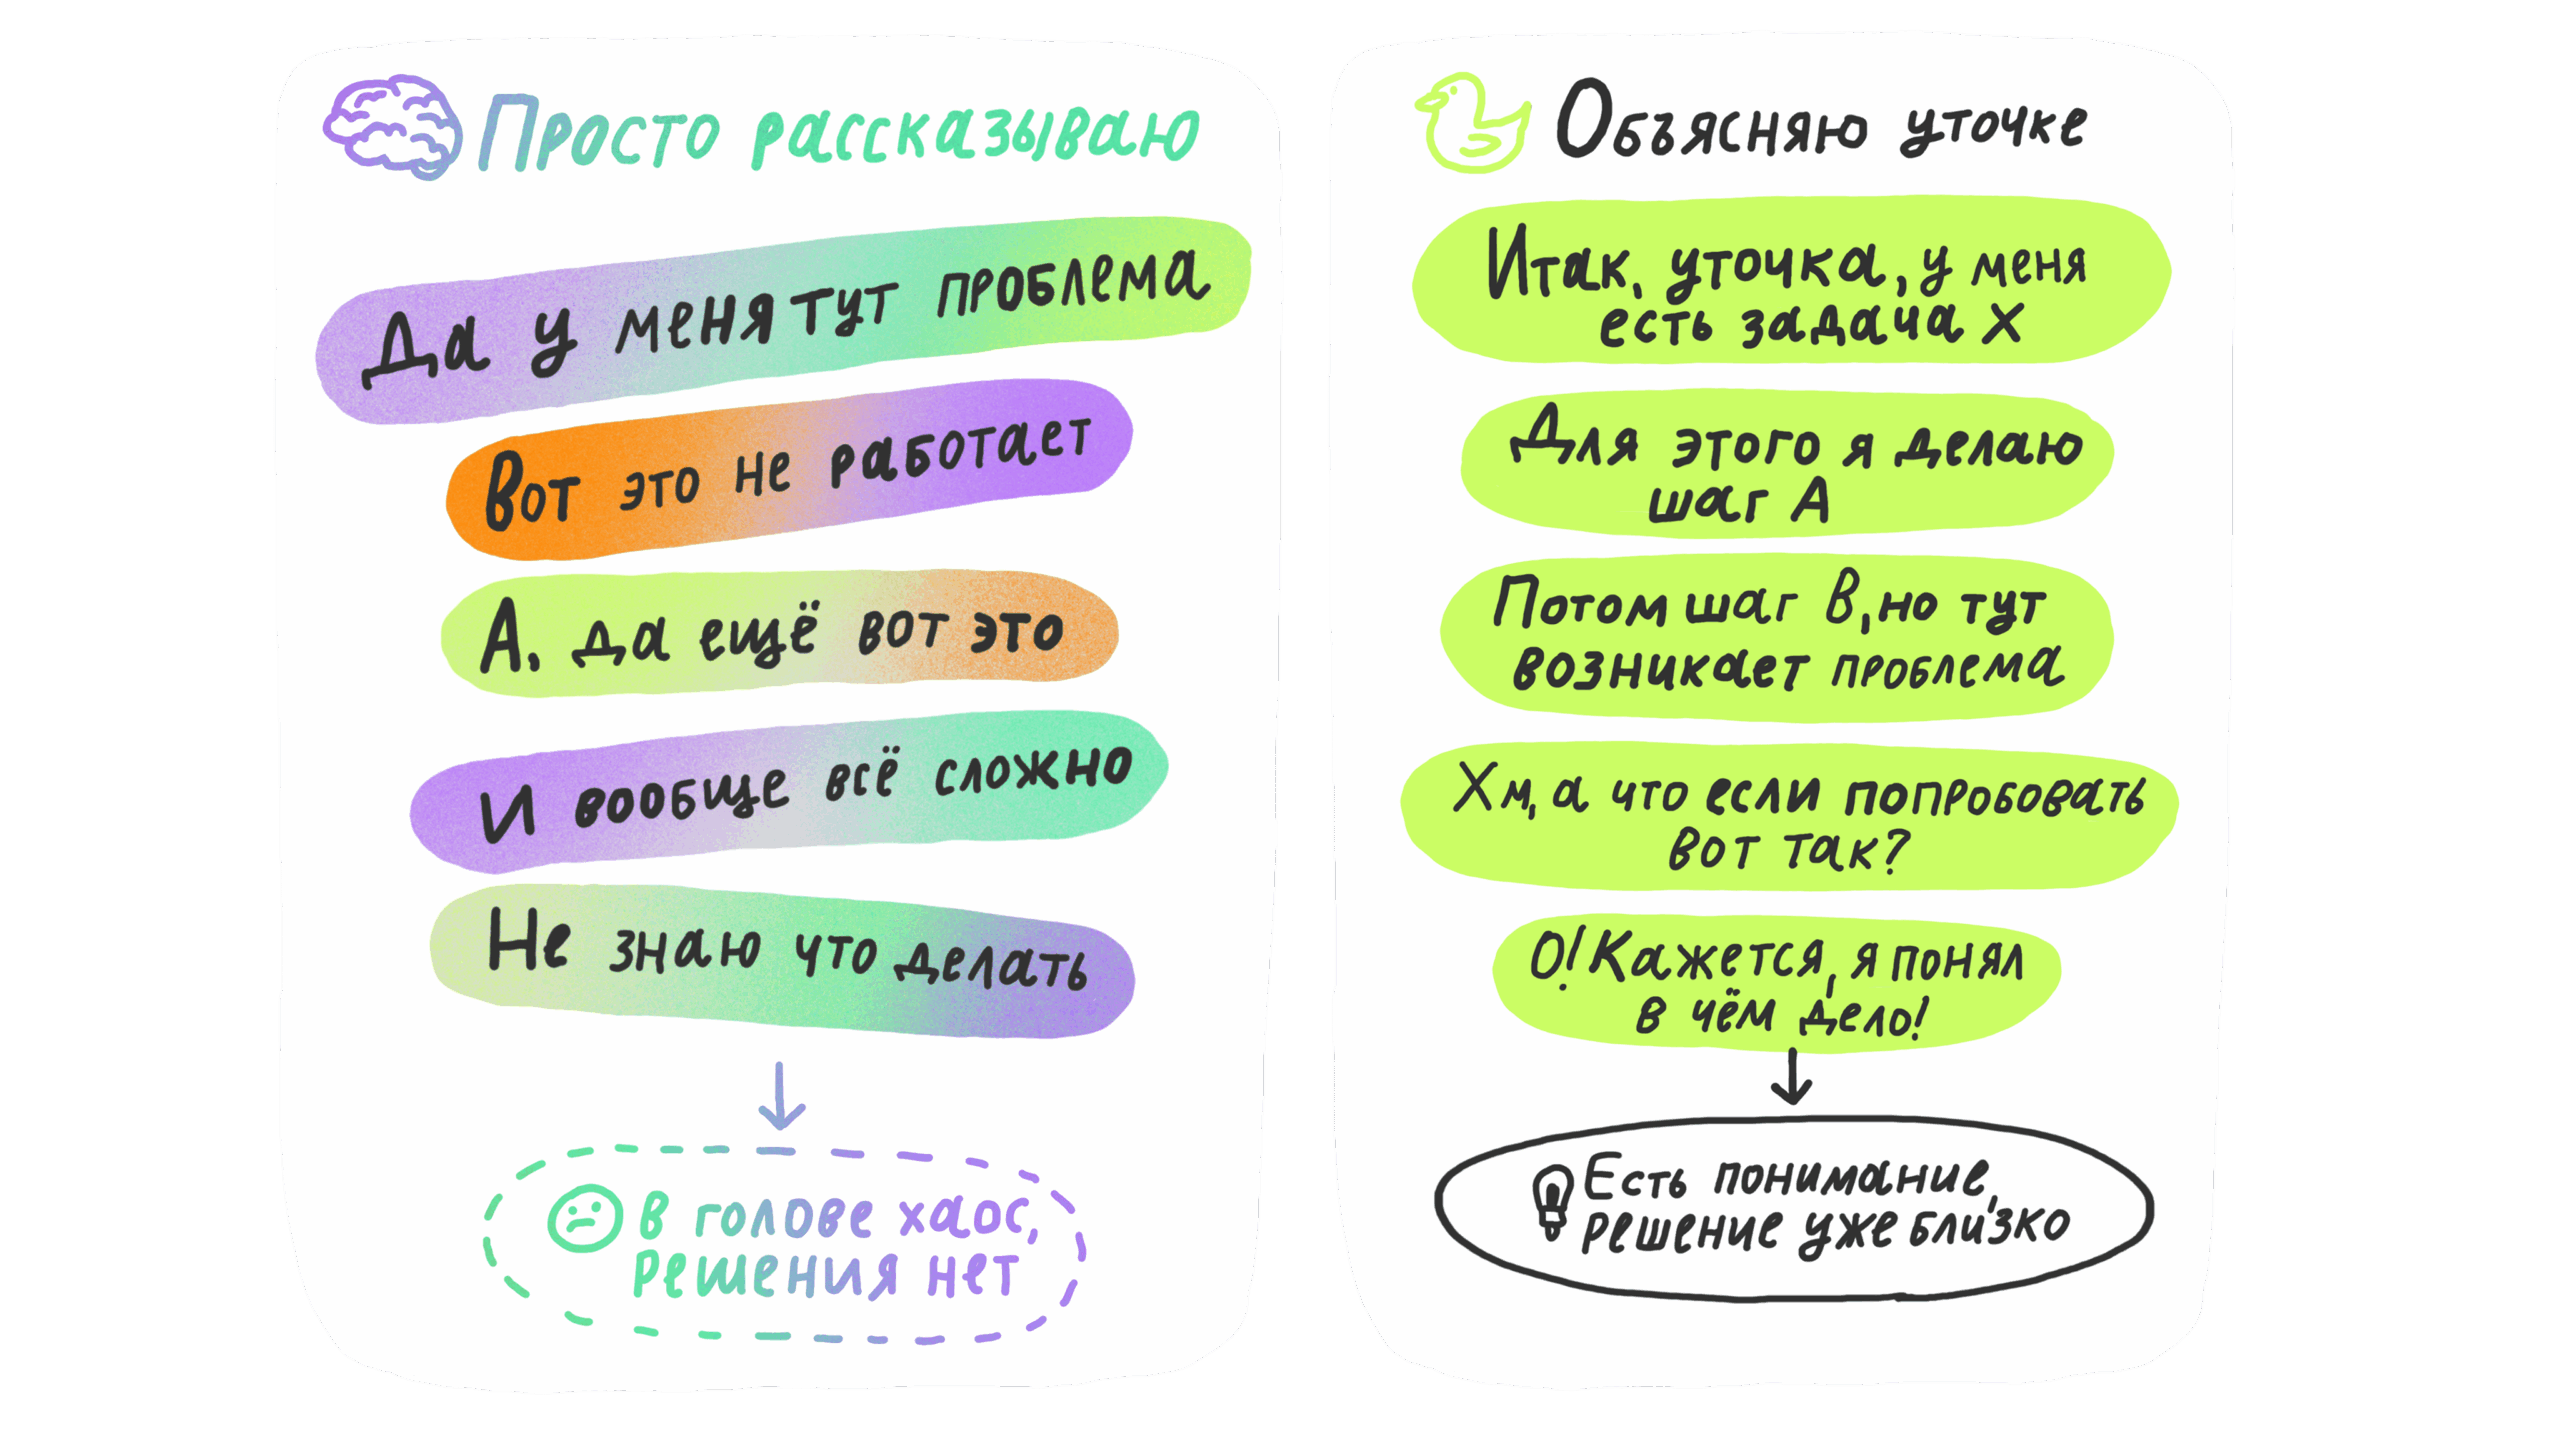 Просто рассказываю
Да у меня тут проблема
Вот это не работает
А, да ещё вот это
И вообще всё сложно
Не знаю что делать
В голове хаос,
решения нет
Объясняю уточке
Итак, уточка, у меня
есть задача X
Для этого я делаю
шаг А
Потом шаг В, но тут
возникает проблема
Хм, а что если попробовать
вот так?
О! Кажется, я понял
в чём дело!
Есть понимание,
решение уже близко